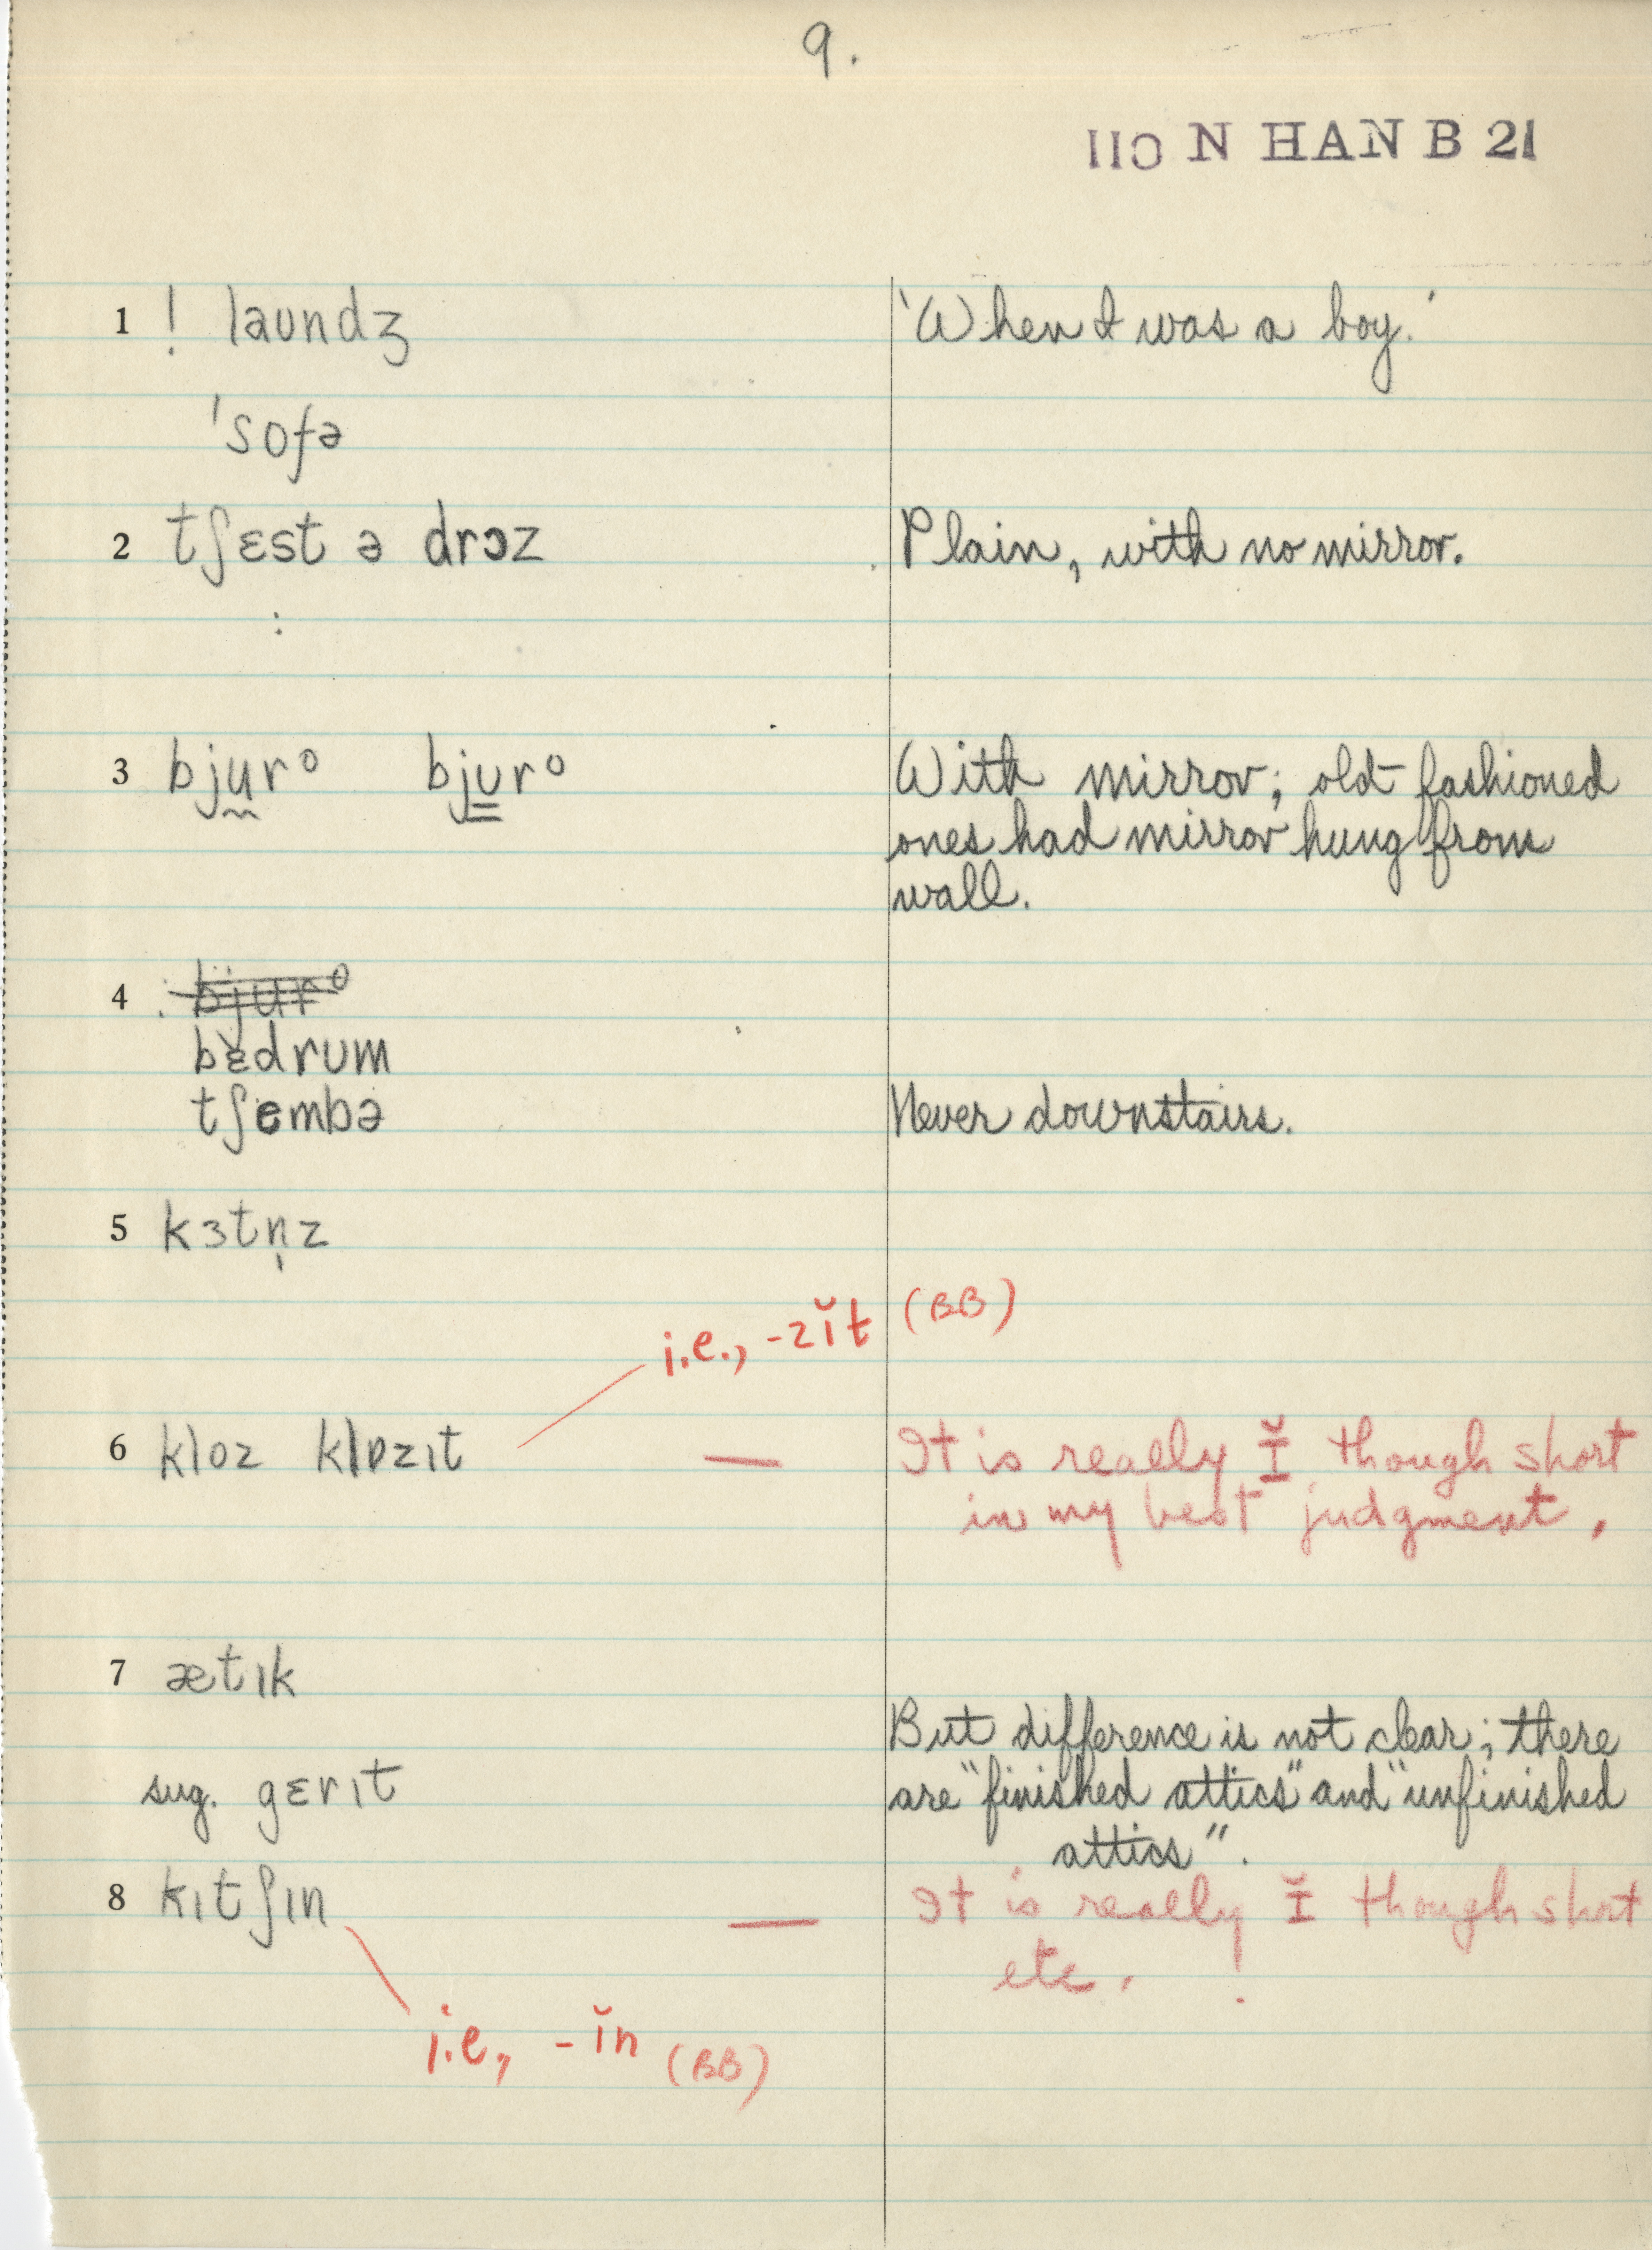 9.
110 N HAN B 21
1 ! laʊndʒ 'When I was a boy.'
'sofə
2 tʃɛst ə drɔz Plain, with no mirror.
:
3 bjuro bjʊro With mirror; old fashioned
ones had mirror hung from
wall.
4 : bjuro
bɛdrum
tʃembə Never downstairs.
5 kɜtn̩z
i.e., -zĭt (BB)
6 kloz klɒzɪt — It is really Ĭ though short
in my best judgment.
7 ætɪk
But difference is not clear; there
sug. gɛrɪt are "finished attics" and "unfinished
attics".
8 kɪtʃɪn — It is really Ĭ though short
etc.
i.e, -ĭn (BB)